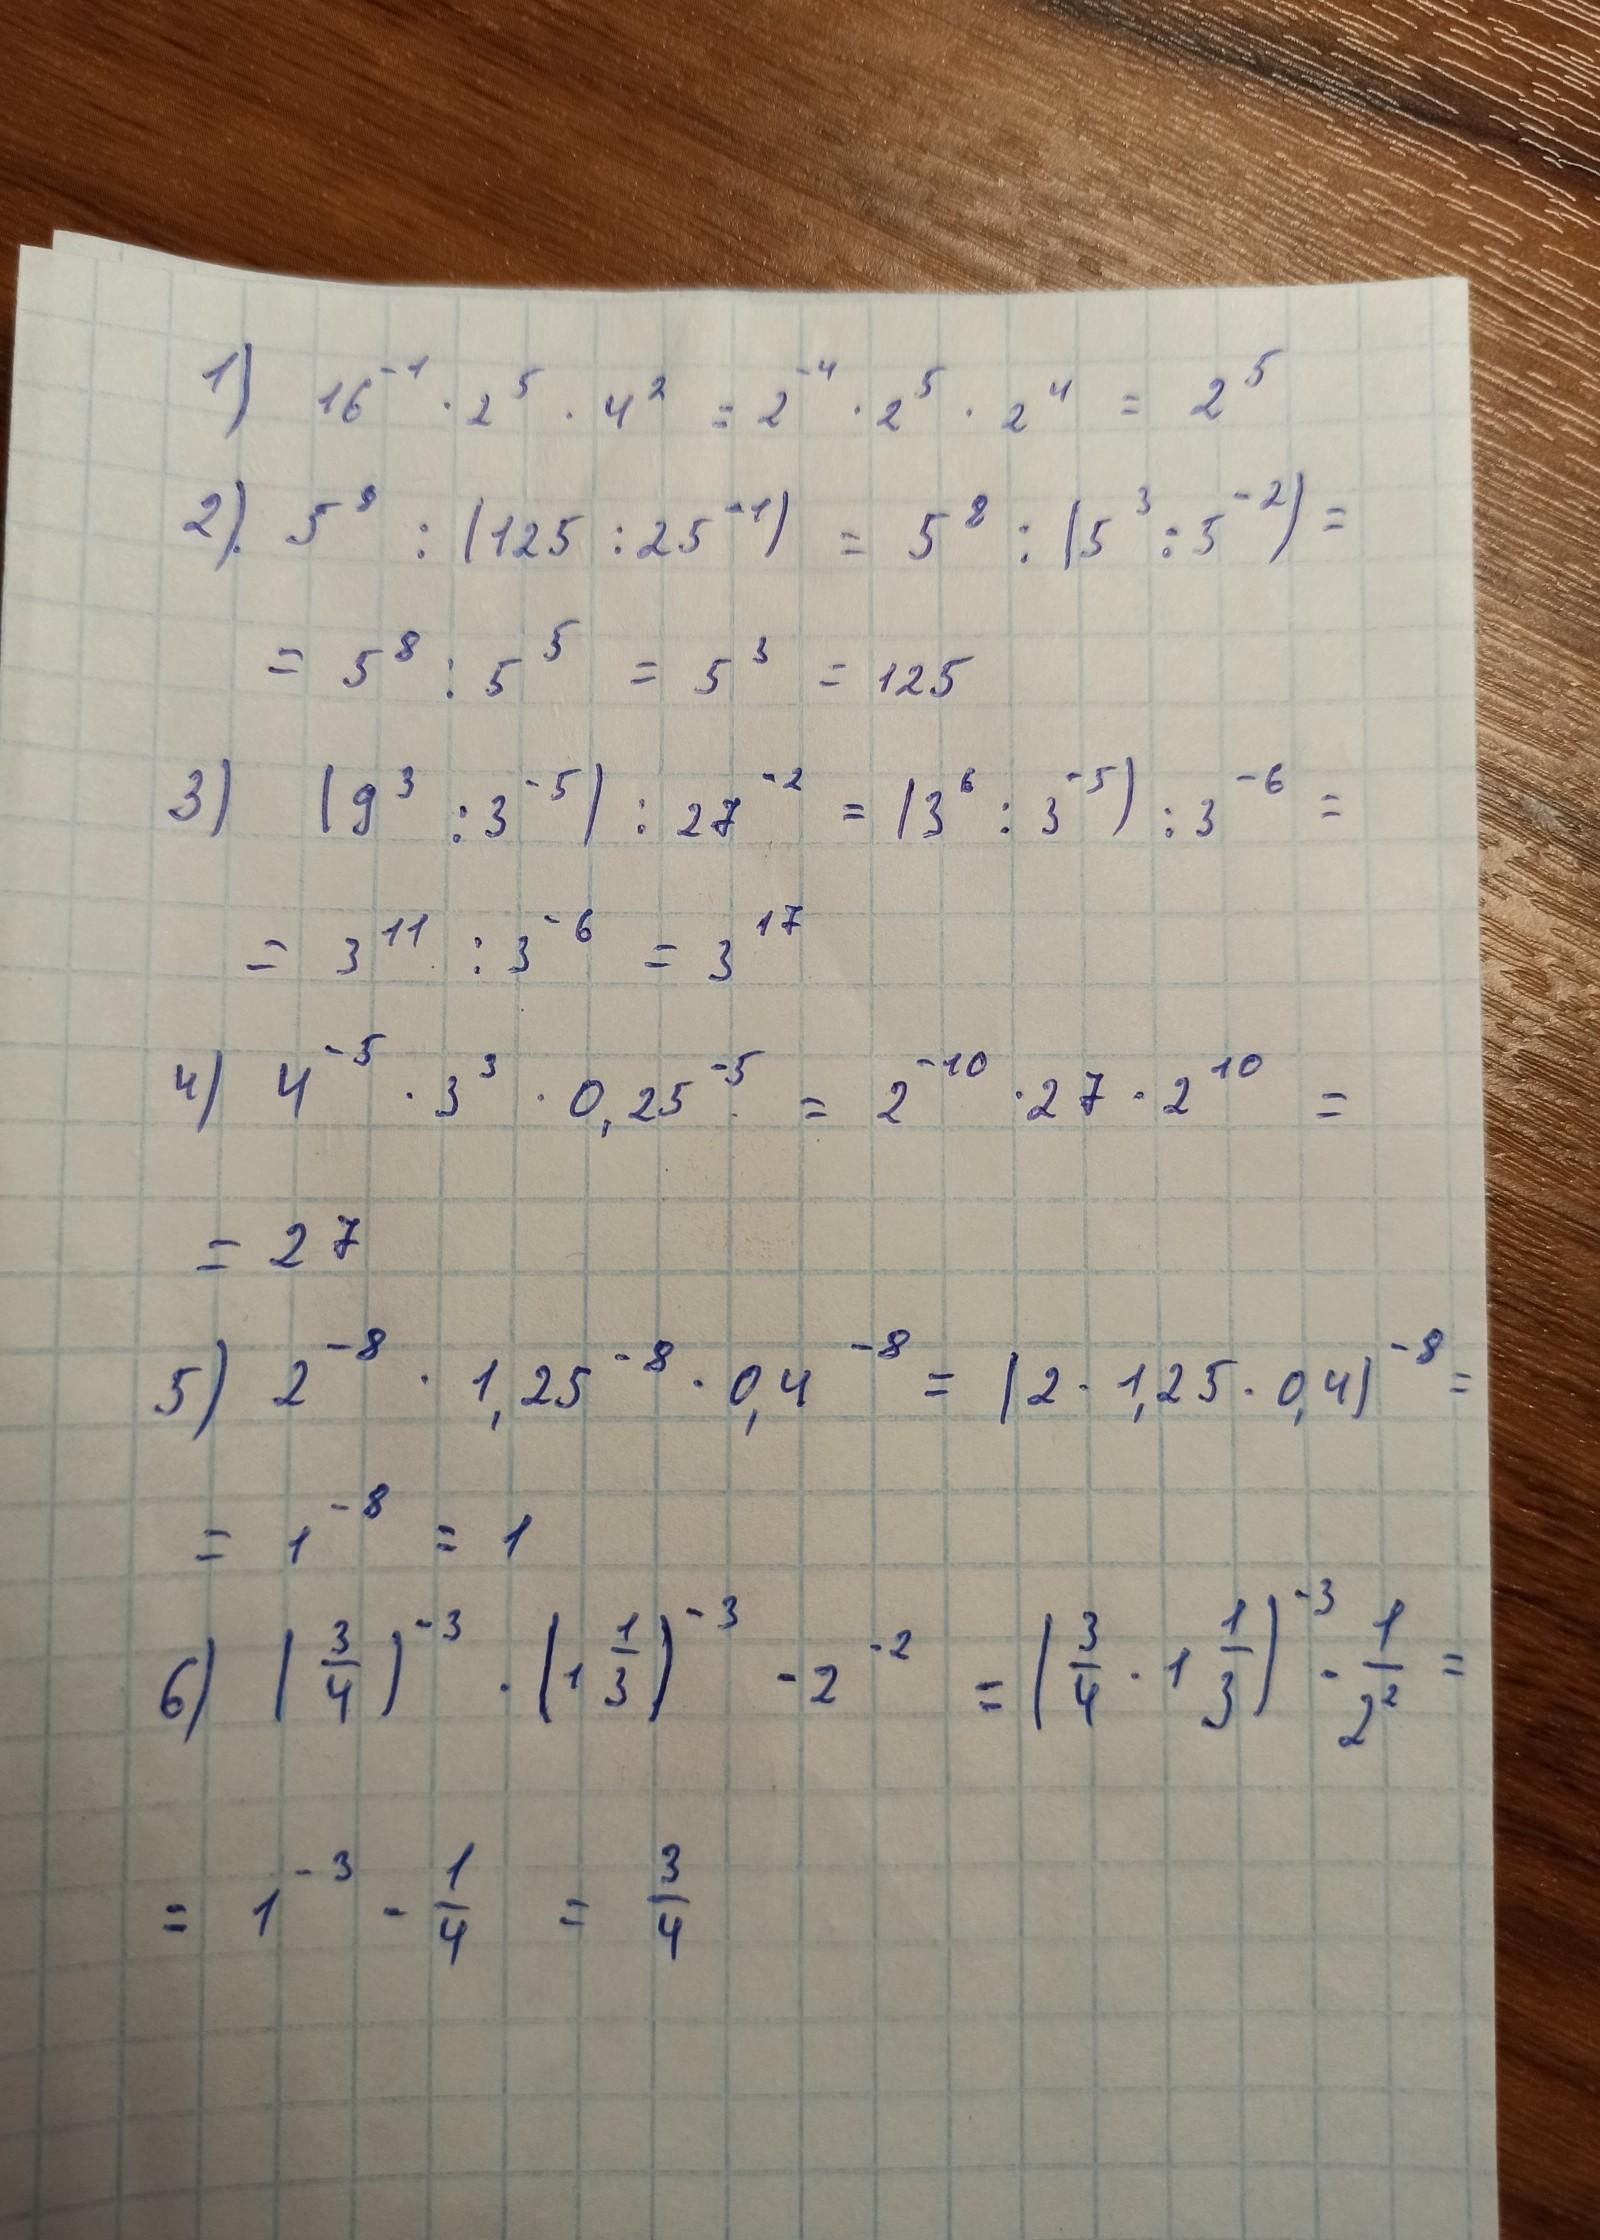 1) 16⁻¹ · 2⁵ · 4² = 2⁻⁴ · 2⁵ · 2⁴ = 2⁵
2). 5⁸ : (125 : 25⁻¹) = 5⁸ : (5³ : 5⁻²) =
= 5⁸ : 5⁵ = 5³ = 125
3) (9³ : 3⁻⁵) : 27⁻² = (3⁶ : 3⁻⁵) : 3⁻⁶ =
= 3¹¹ : 3⁻⁶ = 3¹⁷
4) 4⁻⁵ · 3³ · 0,25⁻⁵ = 2⁻¹⁰ · 27 · 2¹⁰ =
= 27
5) 2⁻⁸ · 1,25⁻⁸ · 0,4⁻⁸ = (2 · 1,25 · 0,4)⁻⁸ =
= 1⁻⁸ = 1
6) (3/4)⁻³ · (1 1/3)⁻³ - 2⁻² = (3/4 · 1 1/3)⁻³ - 1/2² =
= 1⁻³ - 1/4 = 3/4